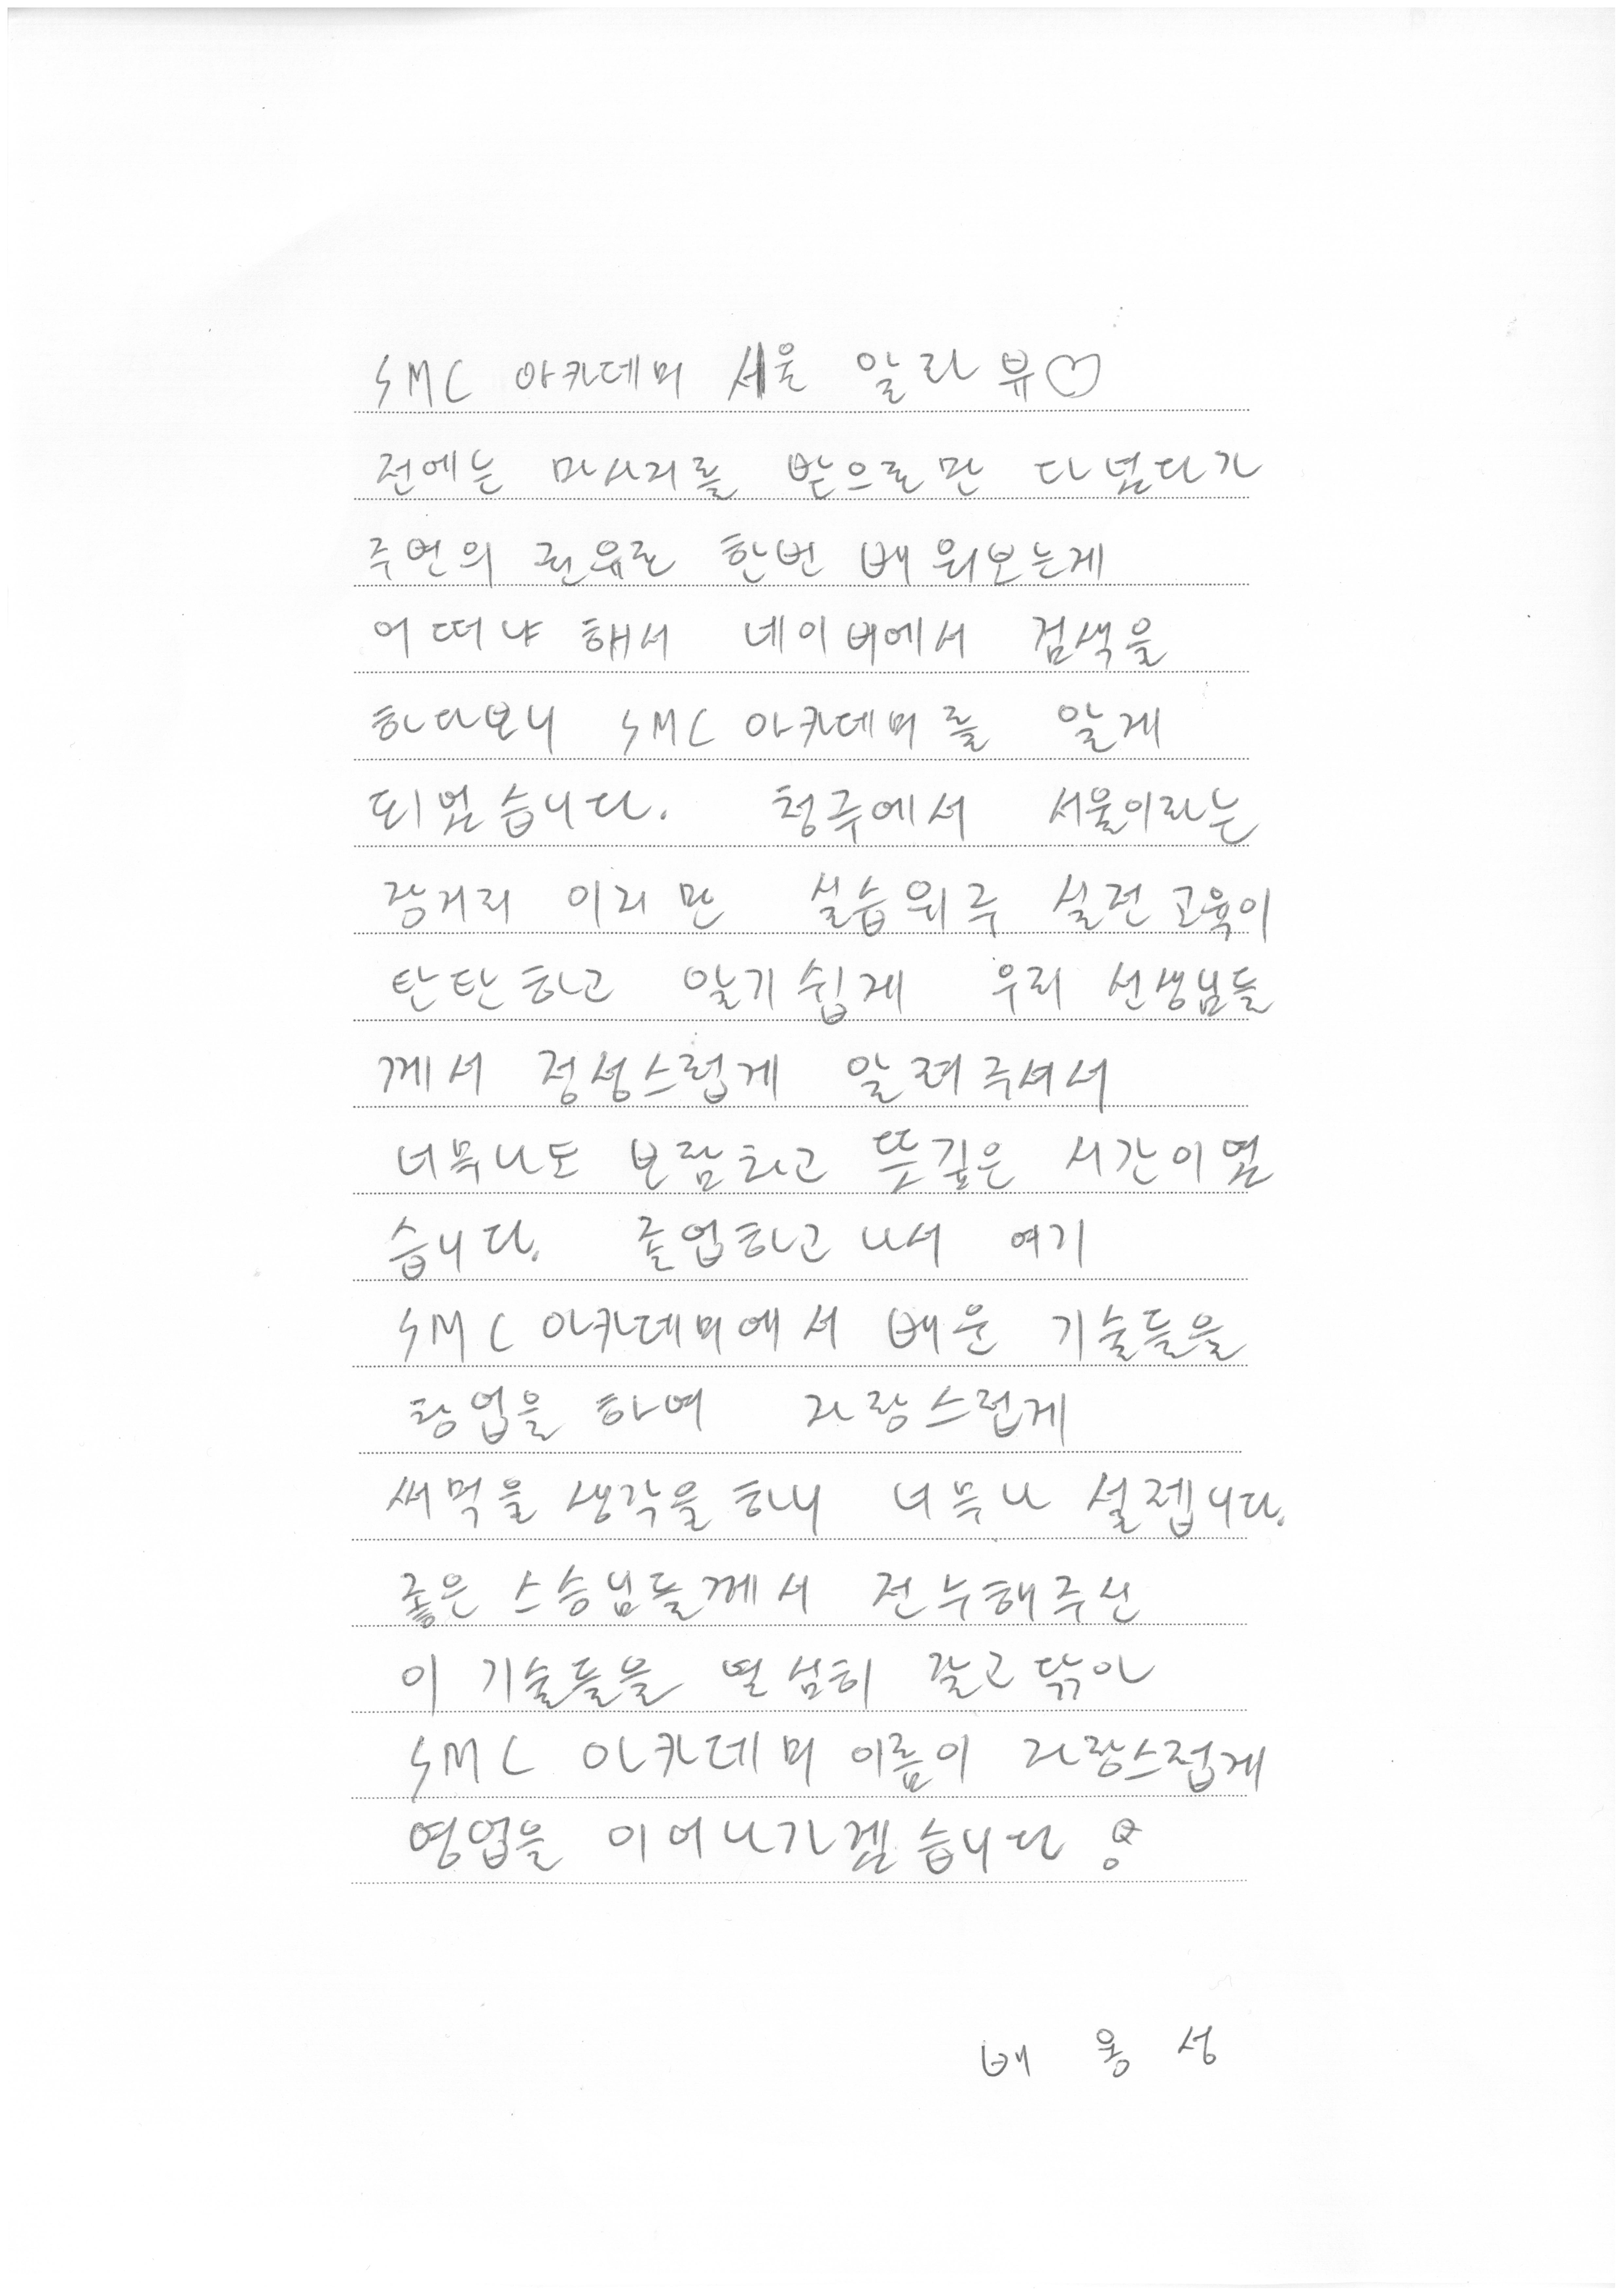 SMC 아카데미 서울 알라뷰♡
전에는 마사지를 받으로만 다녔다가
주변의 권유로 한번 배워보는게
어떠냐 해서 네이버에서 검색을
하다보니 SMC 아카데미를 알게
되었습니다. 청주에서 서울이라는
장거리 이지만 실습위주 실전교육이
탄탄하고 알기쉽게 우리 선생님들
께서 정성스럽게 알려주셔서
너무나도 보람차고 뜻깊은 시간이였
습니다. 졸업하고나서 여기
SMC 아카데미에서 배운 기술들을
창업을 하여 자랑스럽게
써먹을 생각을 하니 너무나 설렙니다.
좋은 스승님들께서 전수해주신
이 기술들을 열심히 갈고닦아
SMC 아카데미 이름이 자랑스럽게
영업을 이어나가겠습니다!
배 웅 성